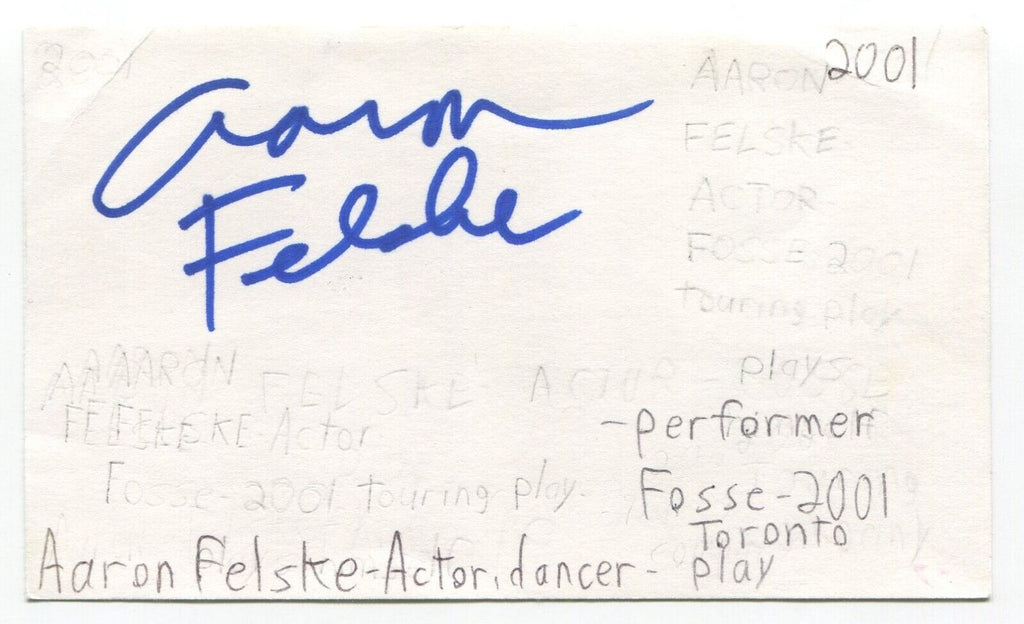 2001
2001
Aaron
Felske
AARON
FELSKE
ACTOR
FOSSE 2001
touring play
plays
AARON
FELSKE ACTOR -
FELSKE-Actor
-performer
Fosse-2001 touring play.
Fosse-2001
Toronto
Aaron Felske-Actor, dancer- play